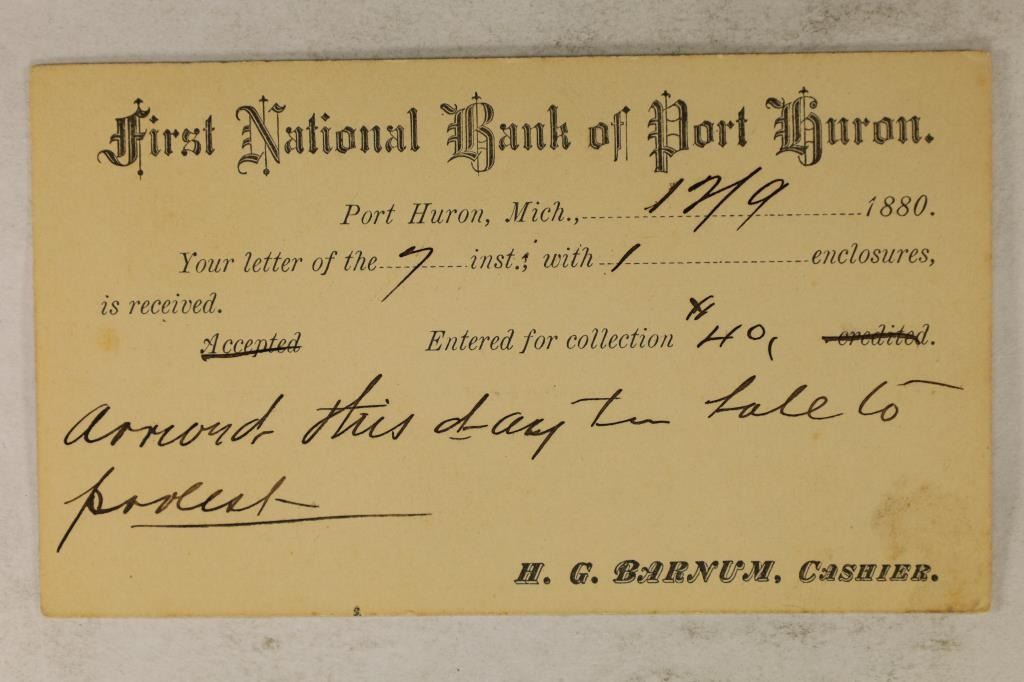 First National Bank of Port Huron.
Port Huron, Mich., 12/9 1880.
Your letter of the 7 inst.; with 1 enclosures,
is received.
Accepted Entered for collection $40, credited.
this day too late to
protest
H. G. BARNUM, CASHIER.